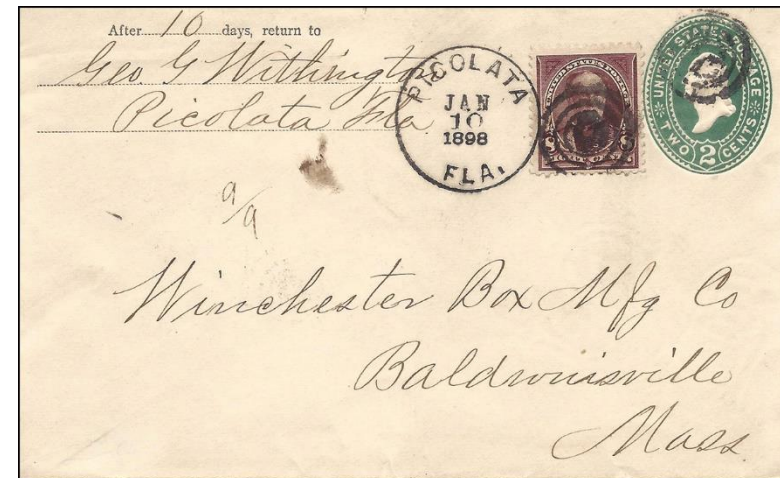 After 10 days, return to
Geo. G Withington
Picolata Fla
PICOLATA
JAN
10
1898
FLA.
UNITED STATES POSTAGE
UNITED STATES POSTAGE
TWO 2 CENTS
a/a
Winchester Box Mfg Co
Baldwinsville
Mass.